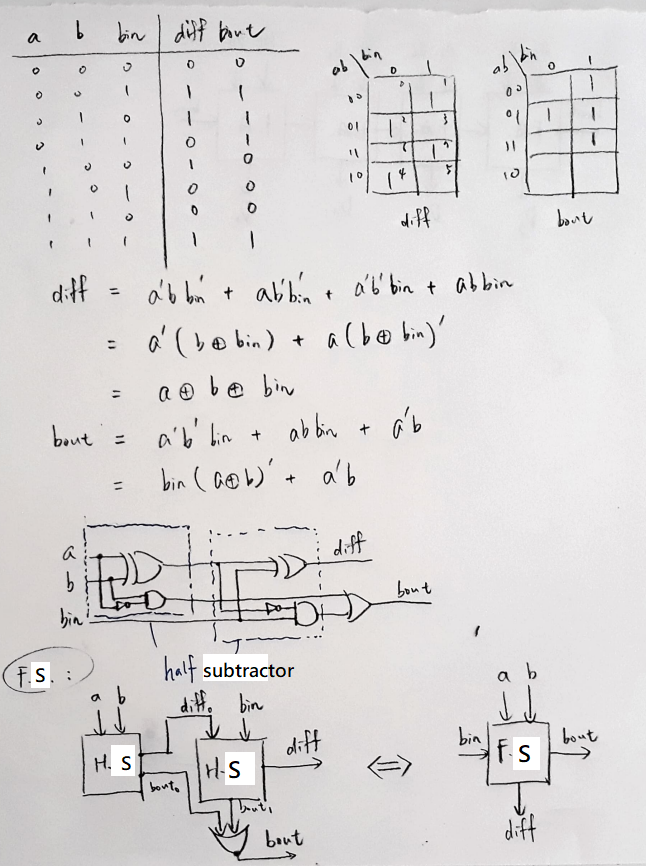 a b bin diff bout
0 0 0 0 0
0 0 1 1 1
0 1 0 1 1
0 1 1 0 1
1 0 0 1 0
1 0 1 0 0
1 1 0 0 0
1 1 1 1 1
ab\bin 0 1
00 0 1 1
01 1 2 3
11 6 1 7
10 1 4 5
diff
ab\bin 0 1
00 1
01 1 1
11 1
10
bout
diff = a'b bin' + ab'bin' + a'b'bin + ab bin
= a'(b⊕bin) + a(b⊕bin)'
= a⊕b⊕bin
bout = a'b'bin + ab bin + a'b
= bin(a⊕b)' + a'b
a
b
bin
diff
bout
half subtractor
F.S. :
a b
diff₀ bin
H.S
H.S
diff
bout₀
bout₁
bout
⇔
a b
bin
F.S
bout
diff